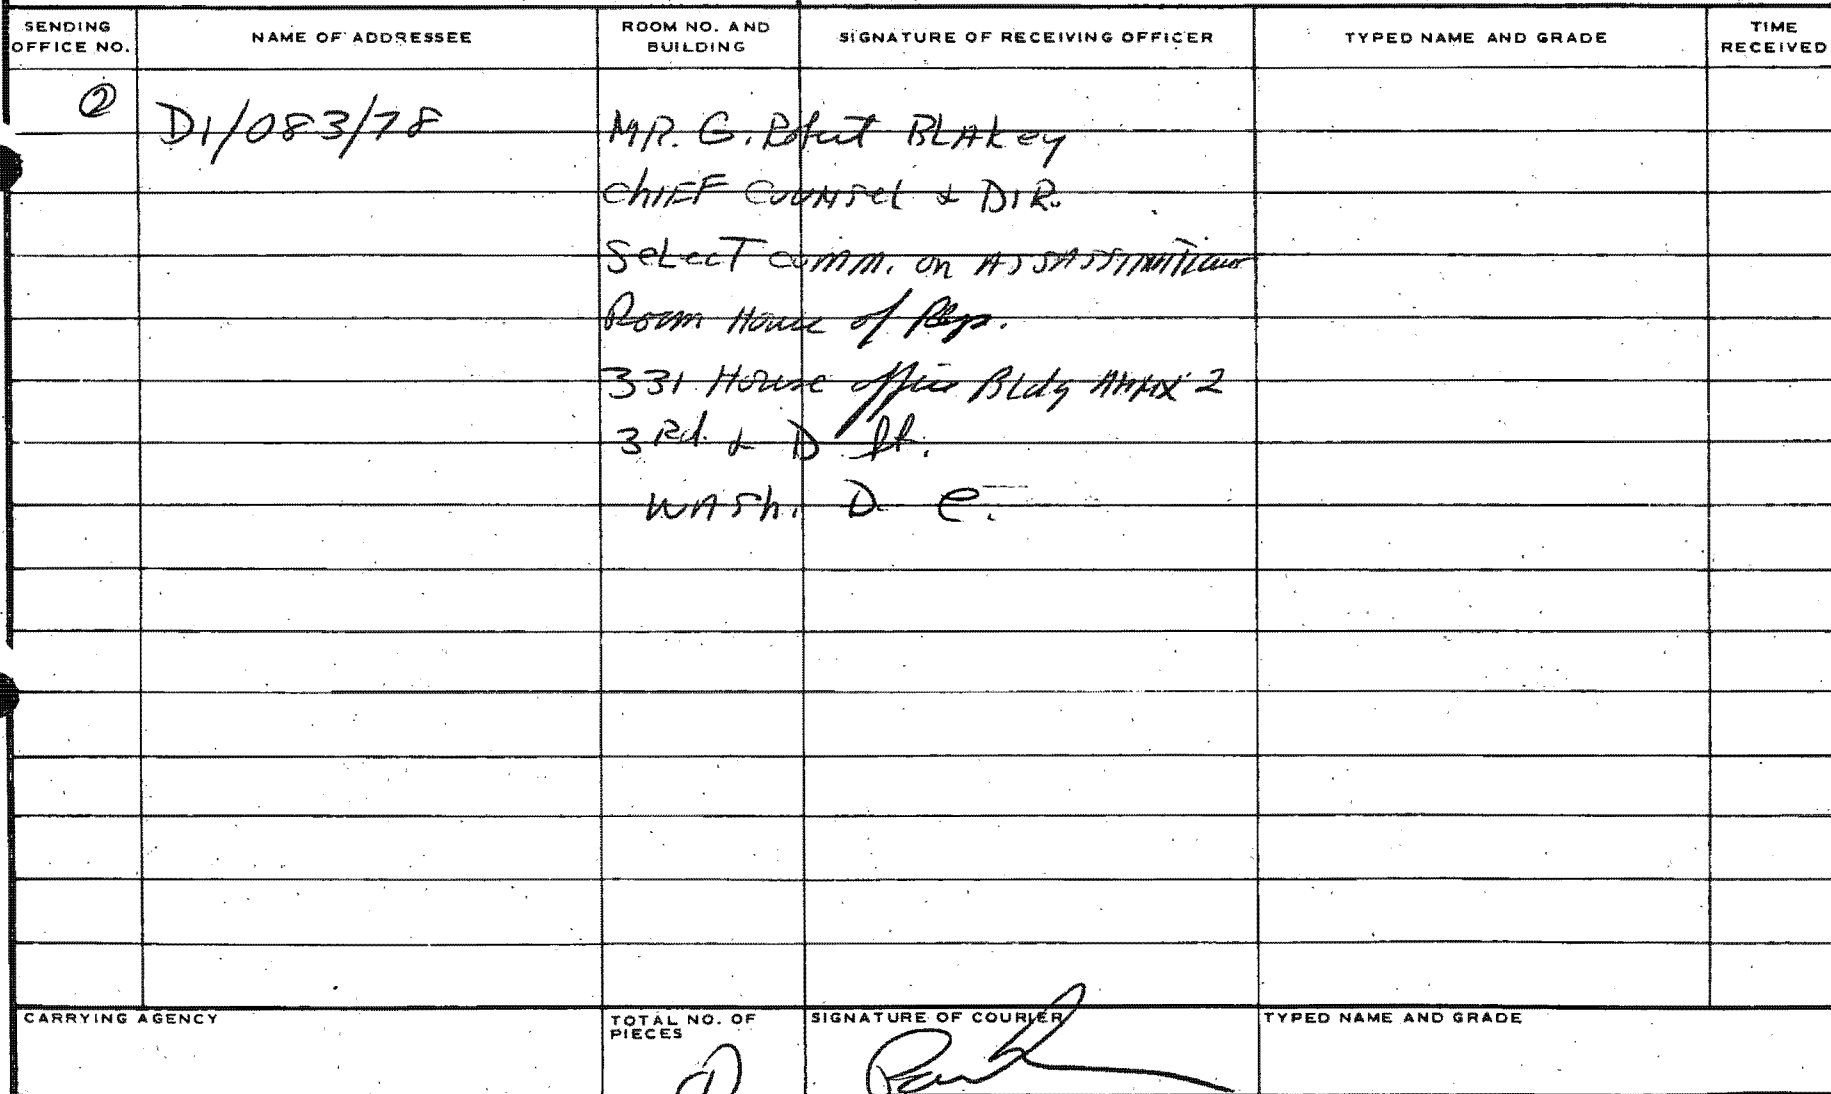 SENDING OFFICE NO.
NAME OF ADDRESSEE
ROOM NO. AND BUILDING
SIGNATURE OF RECEIVING OFFICER
TYPED NAME AND GRADE
TIME RECEIVED
②
D1/083/78
MR. G. Robert BLAKey
CHIEF COUNSel & DIR.
SeLecT comm. on ASSASSINATIONS
Room House of Reps.
331 House office BLdg Annex 2
3 Rd. & D St.
WASh. D. C.
CARRYING AGENCY
TOTAL NO. OF PIECES
SIGNATURE OF COURIER
TYPED NAME AND GRADE